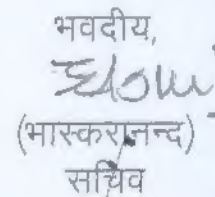 भवदीय,
(भास्करानन्द)
सचिव